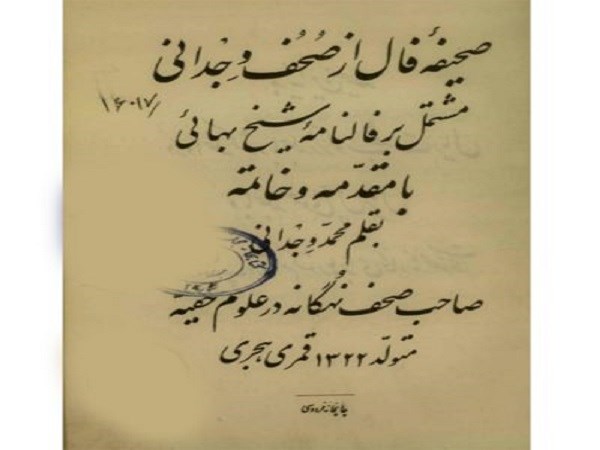 صحیفهٔ فال از صُحُف وجدانی
مشتمل بر فالنامهٔ شیخ بهائی
۱۶۰۱۷/
با مقدّمه و خاتمه
بقلم محمّد وجدانی
صاحب صحف نُهگانه در علوم خفیّه
متولّد ۱۳۲۲ قمری هجری
چاپخانه فردوسی